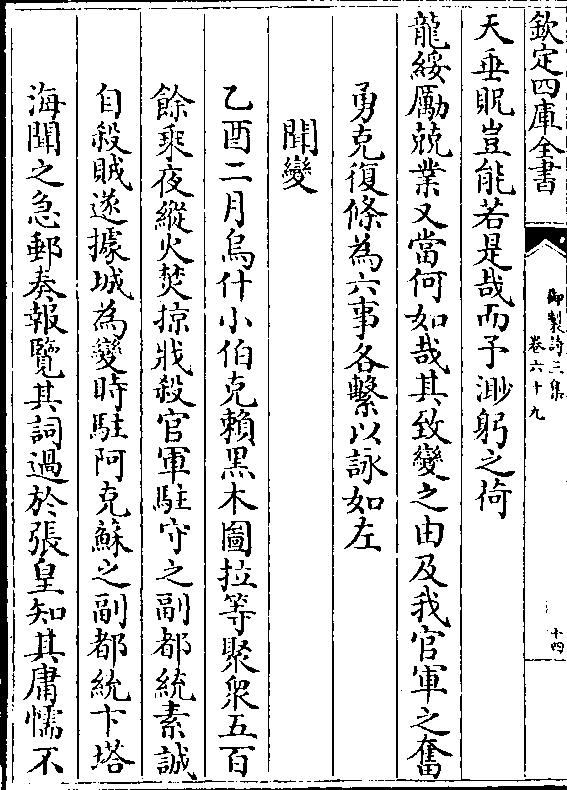 欽定四庫全書
御製詩三集
卷六十九
十四
天垂貺豈能若是哉而予渺躬之荷
龍綏勵兢業又當何如哉其致變之由及我官軍之奮
勇克復條為六事各繫以詠如左
聞變
乙酉二月烏什小伯克賴黑木圖拉等聚衆五百
餘乘夜縱火焚掠戕殺官軍駐守之副都統素誠
自殺賊遂據城為變時駐阿克蘇之副都統卞塔
海聞之急郵奏報覽其詞過於張皇知其庸懦不